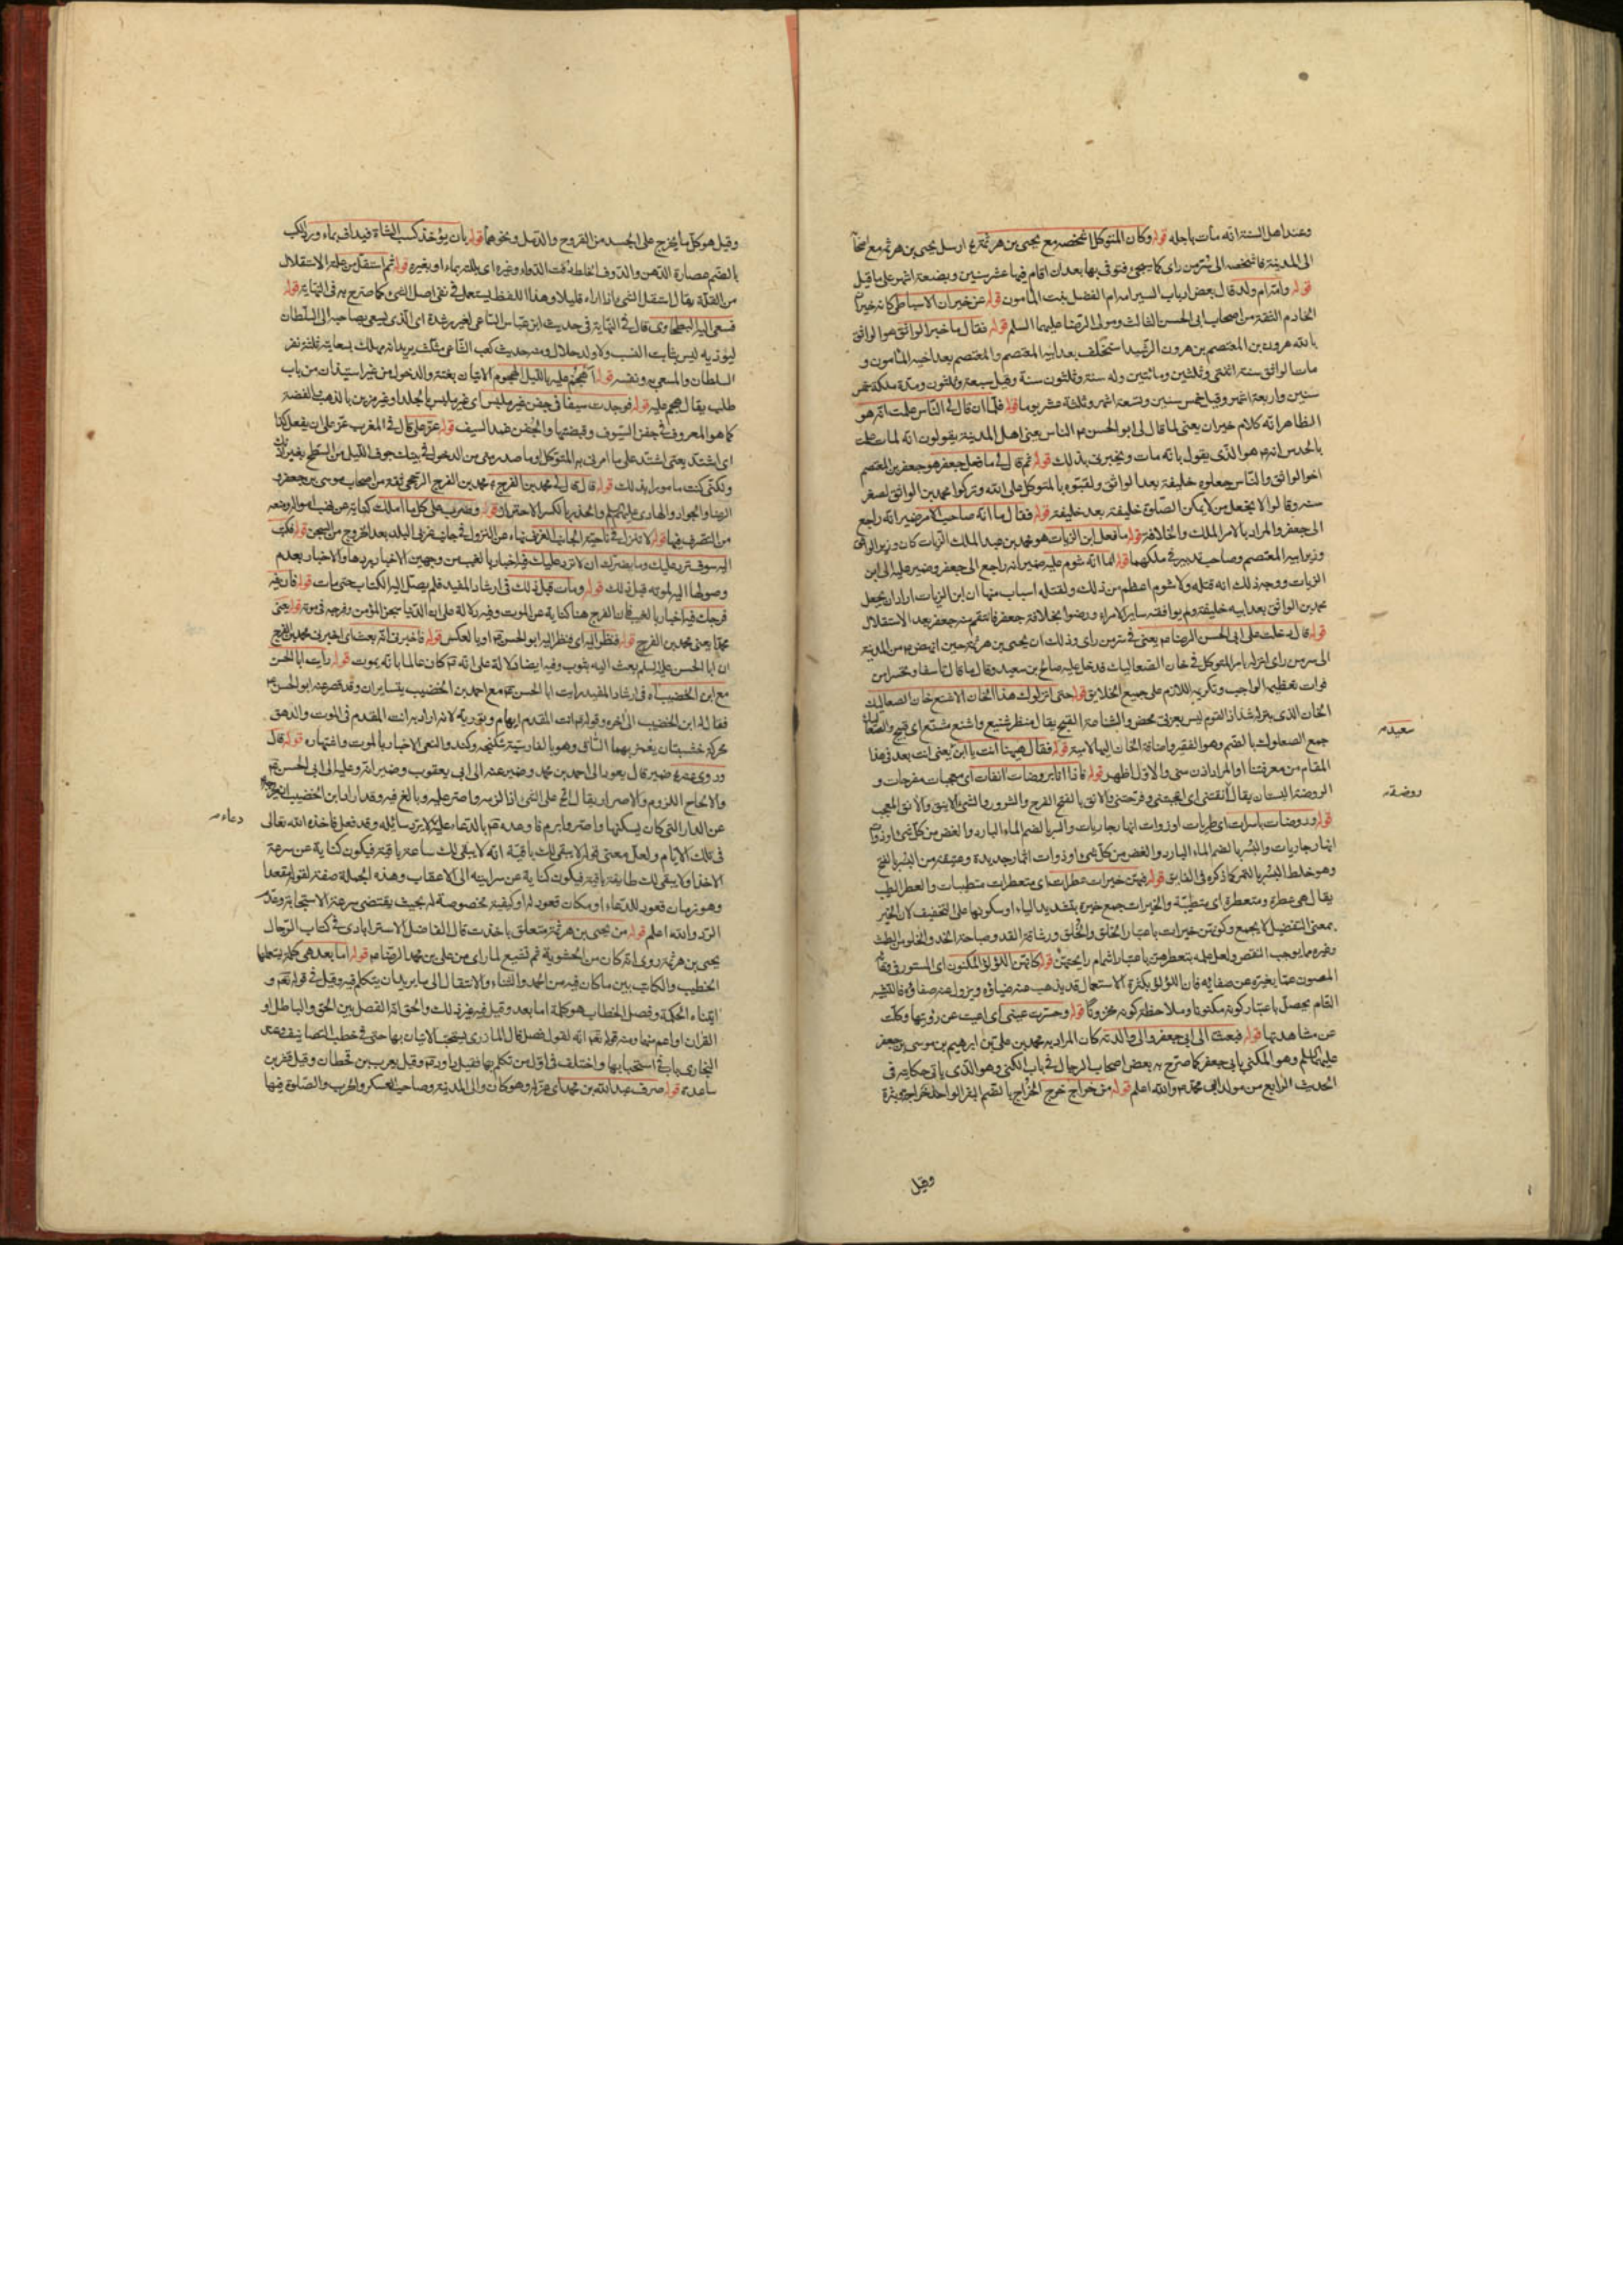 وعند اهل السنة انه مات باجله قوله وكان المتوكل اشخصه مع يحيى بن هرثمة ارسل يحيى بن هرثمة مع
الى المدينة فاشخصه الى سر من راى كما سيجئ فتوفى بها بعد ان اقام فيها عشر سنين وبضعة اشهر على ما قيل
قوله وامه ام ولد قال بعض ارباب السير امه ام الفضل بنت المامون قوله عن خيران الاسباطى كانه خيران
الخادم الثقة من اصحاب ابى الحسن الثالث ومولى الرضا عليهما السلم قوله فقال ما خبر الواثق هو الواثق
بالله هرون بن المعتصم بن هرون الرشيد استخلف بعد ابيه المعتصم والمعتصم بعد اخيه المامون و
مات الواثق سنة اثنتى وثلثين ومائتين وله سنة وثلثون سنة وقيل سبعة وثلثون ومدة ملكه خمس
سنين واربعة اشهر وقيل خمس سنين وتسعة اشهر وثلثة عشر يوما قوله فلما ان قال لى الناس علمت انه هو
الظاهر انه كلام خيران يعنى لما قال لى ابو الحسن ع الناس يعنى اهل المدينة يقولون انه مات علمت
بالحدس انه ع هو الذى يقول بانه مات ويخبرنى بذلك قوله ثم قال لى ما فعل جعفر هو جعفر بن المعتصم
اخو الواثق والناس جعلوه خليفة بعد الواثق ولقبوه بالمتوكل على الله وتركوا محمد بن الواثق لصغر
سنه وقالوا لا نجعل من لا يمكن الصلوة خليفة بعد خليفة قوله فقال اما انه صاحب الامر ضمير انه راجع
الى جعفر والمراد بالامر الملك والخلافة قوله ما فعل ابن الزيات هو محمد بن عبد الملك الزيات كان وزير الواثق
وزير ابيه المعتصم وصاحب تدبير فى ملكهما قوله اما انه شوم عليه ضمير انه راجع الى جعفر وضمير عليه الى ابن
الزيات ووجه ذلك انه قتله ولا شوم اعظم من ذلك ولقتله اسباب منها ان ابن الزيات اراد ان يجعل
محمد بن الواثق بعد ابيه خليفة ولم يوافقه ساير الامراء ورضوا بخلافة جعفر فانتقم منه جعفر بعد الاستقلال
قوله قال دخلت على ابى الحسن الرضا ع يعنى فى سر من راى وذلك ان يحيى بن هرثمة حين اشخصه ع من المدينة
الى سر من راى انزله بامر المتوكل فى خان الصعاليك فدخل عليه صالح بن سعيد وقال ما قال تاسفا وتحسرا من
فوات تعظيمه الواجب وتكريمه اللازم على جميع الخلايق قوله حتى انزلوك هذا الخان الاشنع خان الصعاليك
الخان الذى ينزله شذاذ القوم ليس بعربى محض والشناعة القبح يقال منظر شنيع واشنع مشنع اى قبيح والصعاليك
جمع الصعلوك بالضم وهو الفقير واضافة الخان اليها لامية قوله فقال ههنا انت يا ابن يعنى انت بعد فى هذا
المقام من معرفتنا او المراد اذن منى والاول اظهر قوله فاذا انا بروضات انقات اى معجبات مفرحات و
الروضة البستان يقال آنقتنى اى اعجبتنى وفرحتنى والانق بالفتح الفرح والسرور والشئ الانيق والانق المعجب
قوله وروضات باسرات اى طريات او ذوات انهار جاريات والبسر بالضم الماء البارد والغض من كل شئ او ذوات
انهار جاريات والبسر بالضم الماء البارد والغض من كل شئ او ذوات اثمار جديدة وعتيقة من البسر بالفتح
وهو خلط البسر بالتمر كما ذكره فى الفايق قوله فيهن خيرات عطرات اى متعطرات متطيبات والعطر الطيب
يقال هى عطرة ومتعطرة اى متطيبة والخيرات جمع خيرة بتشديد الياء او سكونها على التخفيف لان الخير
بمعنى التفضيل لا يجمع وكونهن خيرات باعتبار الخلق والخلق ورشاقة القد وصباحة الخد والخلو من الطمث
وغيره مما يوجب النقص ولعل عله بتعطرهن باعتبار اشمام رايحتهن قوله كانهن اللؤلؤ المكنون اى المستور فى وقايه
المصون عما يغيره عن صفائه فان اللؤلؤ بكثرة الاستعمال قد يذهب عنه ضياؤه ويزول عنه صفاؤه فالتشبيه
التام يحصل باعتبار كونه مكنونا وملاحظة كونه مخزونا قوله وحسرت عينى اى اعيت عن رؤيتها وكلت
عن مشاهدتها قوله فبعث الى ابى جعفر والى والدته كان المراد به محمد بن على بن ابرهيم بن موسى بن جعفر
عليهما السلم وهو المكنى بابى جعفر كما صرح به بعض اصحاب الرجال فى باب الكنى وهو الذى ياتى حكايته فى
الحديث الرابع من مولد ابى محمد ع والله اعلم قوله من خراج خرج الخراج بالضم البثر الواحدة خراجة وبثرة
سعيد
روضة
وقيل
وقيل هو كل ما يخرج على الجسد من القروح والدمل ونحوهما قوله بان يؤخذ كسب الشاة فيداف بماء ورد الكسب
بالضم عصارة الدهن والدوف الخلط دفت الدواء وغيره اى بللته بماء او بغيره قوله ثم استقل من علته الاستقلال
من القلة يقال استقل الشئ اذا راه قليلا وهذا اللفظ يستعمل فى نفى اصل الشئ كما صرح به فى النهاية قوله
فسعى اليه البطحاوى قال فى النهاية فى حديث ابن عباس الساعى لغير رشدة اى الذى يسعى بصاحبه الى السلطان
ليؤذيه ليس بثابت النسب ولا ولد حلال ومنه حديث كعب الساعى مثلث يريد انه مهلك بسعايته ثلثة نفر
السلطان والمسعى به ونفسه قوله اهجم عليه بالليل الهجوم الاتيان بغتة والدخول من غير استيذان من باب
طلب يقال هجم عليه قوله فوجدت سيفا فى جفن غير ملبس اى غير ملبس بالجلد او غير مزين بالذهب والفضة
كما هو المعروف فى جفن السيوف وقبضتها والجفن غمد السيف قوله عز على قال فى المغرب عز على ان يفعل كذا
اى اشتد يعنى اشتد على ما امرنى به المتوكل او ما صدر منى من الدخول فى بيتك جوف الليل من السطح بغير اذنك
ولكنى كنت مامورا بذلك قوله قال قال لى محمد بن الفرج ع محمد بن الفرج الرخجى ثقة من اصحاب موسى بن جعفر و
الرضا والجواد والهادى عليهم السلم والحذر بالكسر الاحتراز قوله وضرب على كل ما املك كناية عن ضبط امواله ومنعه
من التصرف فيها قوله لا تنزل فى ناحية الجانب الغربى نهاه عن النزول فى جانب غربى البلد بعد الخروج من السجن قوله فكتب
اليه سوف ترد عليك وما يضرك ان لا ترد عليك فيه اخبار بالغيب من وجهين الاخبار بردها والاخبار بعدم
وصولها اليه لموته قبل ذلك قوله ومات قبل ذلك فى ارشاد المفيد فلم يصل اليه الكتاب حتى مات قوله فان فيه
فرجك فيه اخبار بالغيب فان الفرج هنا كناية عن الموت وفيه دلالة على ان الدنيا سجن المؤمن وفرجه فى موته قوله يعنى
محمدا يعنى محمد بن الفرج قوله فنظر اليه اى فنظر اليه ابو الحسن ع او بالعكس قوله فاخبرنى انه بعث اى اخبرنى محمد بن الفرج
ان ابا الحسن عليه السلم بعث اليه بثوب وفيه ايضا دلالة على انه ع كان عالما بانه يموت قوله رايت ابا الحسن
مع ابن الخضيب فى ارشاد المفيد رايت ابا الحسن ع مع احمد بن الخضيب يتسايران وقد قصر عنه ابو الحسن ع
فقال له ابن الخضيب الى اخره وقوله ع انت المقدم ايهام وتورية لانه اراد به انت المقدم فى الموت والدهق
محركة خشبتان يغمز بهما الساق وهو بالفارسية شكنجه وكند والنعى الاخبار بالموت واشتهاره قوله قال
وروى عنه ضمير قال يعود الى احمد بن محمد وضمير عنه الى ابى يعقوب وضمير انه وعليه الى ابى الحسن ع
والالحاح اللزوم والاصرار يقال الح على الشئ اذا لزمه واصر عليه وبالغ فيه وقد اراد ابن الخضيب اخراجه
عن الدار التى كان يسكنها واصر وابرم فاوعده ع بالدعاء عليه لا يرد سائله وقد فعل فاخذه الله تعالى
فى تلك الايام ولعل معنى قوله لا يبقى لك باقية انه لا يبقى لك ساعة باقية فيكون كناية عن سرعة
الاخذ او لا يبقى لك طايفة باقية فيكون كناية عن سرايته الى الاعقاب وهذه الجملة صفة لقوله مقعدا
وهو زمان قعود للدعاء او مكان قعود له او كيفية مخصوصة له بحيث يقتضى سرعة الاستجابة وعدم
الرد والله اعلم قوله من يحيى بن هرثمة متعلق باخذت قال الفاضل الاسترابادى فى كتاب الرجال
يحيى بن هرثمة روى انه كان من الحشوية ثم تشيع لما راى من على بن محمد الرضا ع قوله اما بعد هى كلمة يستعملها
الخطيب والكاتب بين ما كان فيه من الحمد والثناء والانتقال الى ما يريد ان يتكلم فيه وقيل فى قوله تعالى و
اتيناه الحكمة وفصل الخطاب هو كلمة اما بعد وقيل فيه غير ذلك والحق انه الفصل بين الحق والباطل او
القران او اعم منها ومنه قوله تعالى انه لقول فصل قال المازرى يستحب الاتيان بها حتى فى خطب التصانيف وعقد
البخارى بابا فى استحبابها واختلف فى اول من تكلم بها فقيل داود ع وقيل يعرب بن قحطان وقيل قس بن
ساعدة قوله صرف عبد الله بن محمد اى عزله وهو كان والى المدينة وصاحب العسكر والحرب والصلوة فيها
دعاء